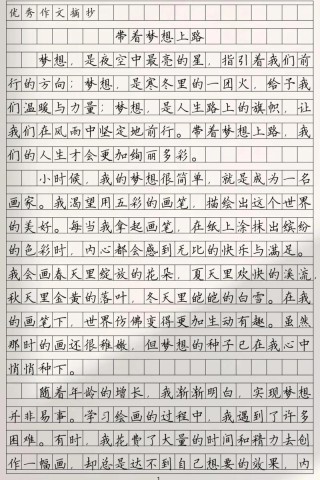 优秀作文摘抄
带着梦想上路
梦想，是夜空中最亮的星，指引着我们前
行的方向；梦想，是寒冬里的一团火，给予我
们温暖与力量；梦想，是人生路上的旗帜，让
我们在风雨中坚定地前行。带着梦想上路，我
们的人生才会更加绚丽多彩。
小时候，我的梦想很简单，就是成为一名
画家。我渴望用五彩的画笔，描绘出这个世界
的美好。每当我拿起画笔，在纸上涂抹出缤纷
的色彩时，内心都会感到无比的快乐与满足。
我会画春天里绽放的花朵，夏天里欢快的溪流，
秋天里金黄的落叶，冬天里皑皑的白雪。在我
的画笔下，世界仿佛变得更加生动有趣。虽然
那时的画还很稚嫩，但梦想的种子已在我心中
悄悄种下。
随着年龄的增长，我渐渐明白，实现梦想
并非易事。学习绘画的过程中，我遇到了许多
困难。有时，我花费了大量的时间和精力去创
作一幅画，却总是达不到自己想要的效果，内
1